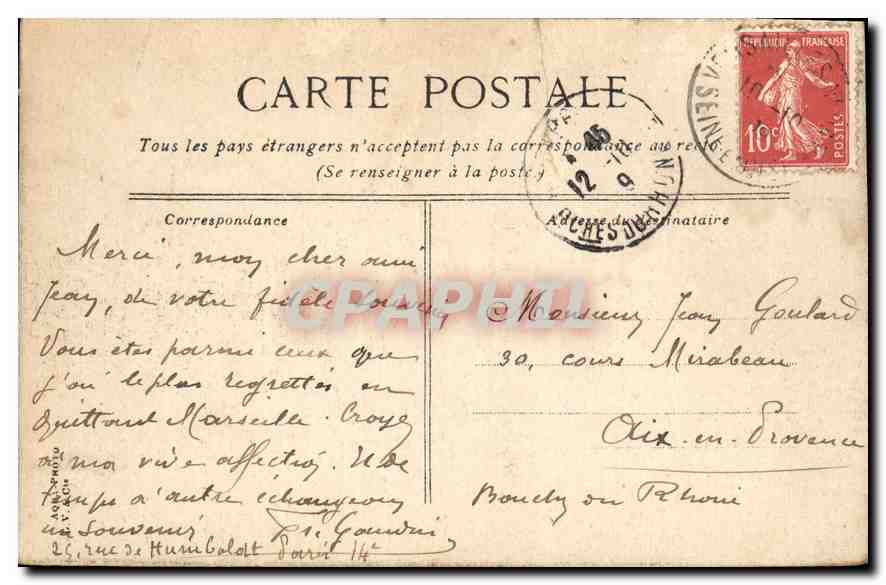 CARTE POSTALE
Tous les pays étrangers n'acceptent pas la correspondance au recto
(Se renseigner à la poste)
Correspondance
Merci, mon cher ami
Jean, de votre fidèle souvenir
Vous êtes parmi ceux que
j'ai le plus regrettés en
quittant Marseille. Croyez
à ma vive affection. Et de
temps à autre échangeons
un souvenir
25, rue de Humboldt Paris 14e
AQUA-PHOTO
Adresse du destinataire
Monsieur Jean Goulard
30, cours Mirabeau
Aix-en-Provence
Bouches du Rhône
REPUBLIQUE FRANÇAISE
10c
POSTES
12 -10
9
BCHES DU RHON
SEINE
CPAPHIL